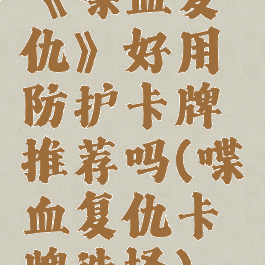 《喋血复
仇》好用
防护卡牌
推荐吗(喋
血复仇卡
牌选择)